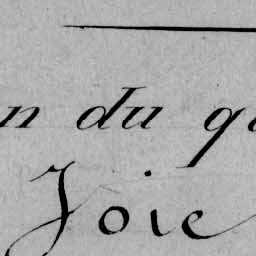 n du q
Joie